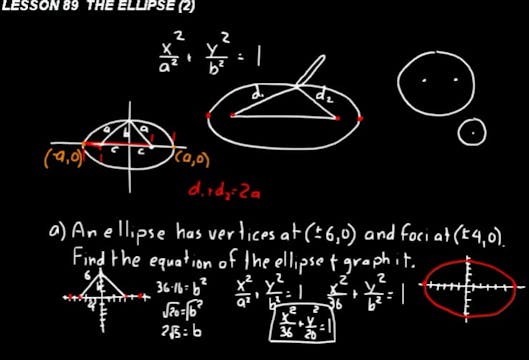 LESSON 89 THE ELLIPSE (2)
x²/a² + y²/b² = 1
d₁ d₂
a a
b
c c
(-a,0) (a,0)
d₁+d₂=2a
a) An ellipse has vertices at (±6,0) and foci at (±4,0).
Find the equation of the ellipse & graph it.
6
4
36-16=b²
√20=√b²
2√5=b
x²/a² + y²/b² = 1
x²/36 + y²/b² = 1
x²/36 + y²/20 = 1